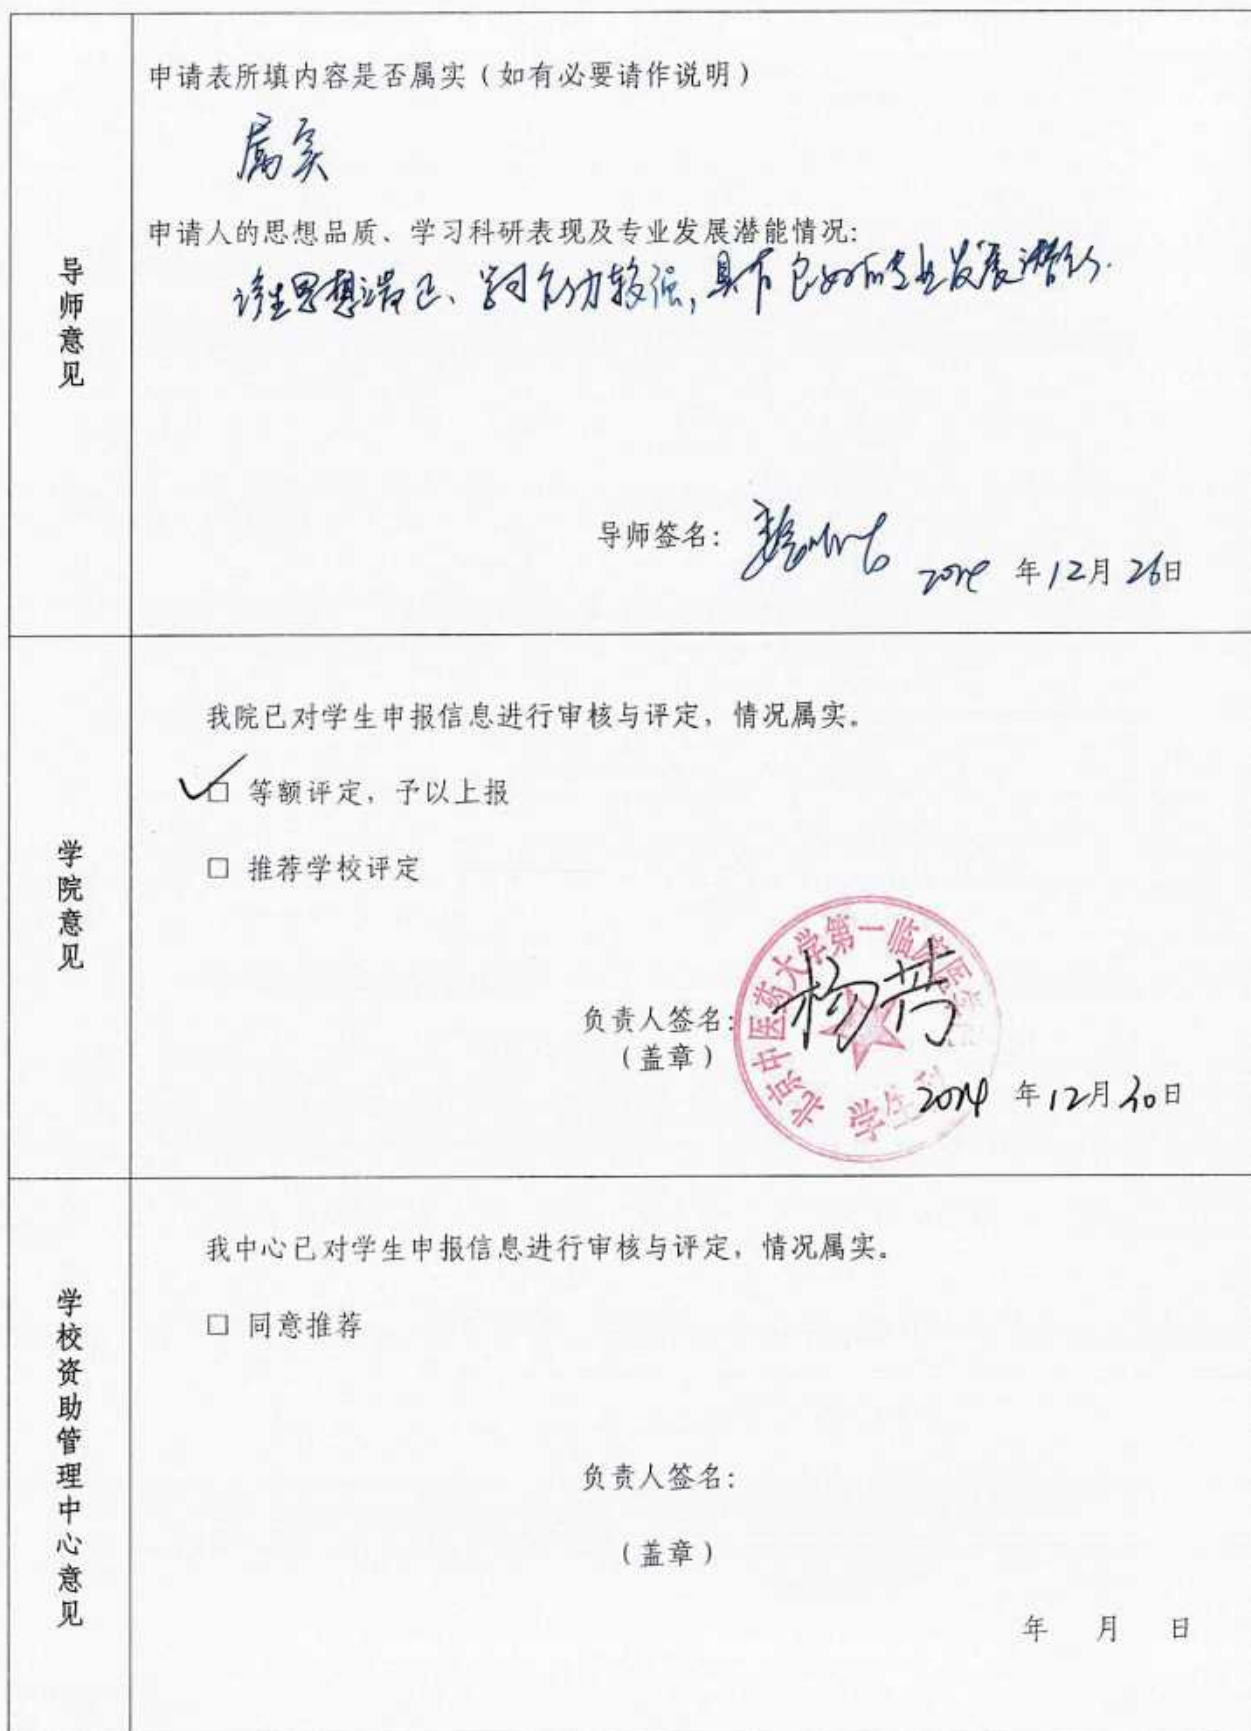 导师意见
申请表所填内容是否属实（如有必要请作说明）
属实
申请人的思想品质、学习科研表现及专业发展潜能情况：
该生思想端正、学习能力较强，具有良好的专业发展潜能.
导师签名：
年12月26日
学院意见
我院已对学生申报信息进行审核与评定，情况属实。
□ 等额评定，予以上报
□ 推荐学校评定
北京中医药大学第一临床医学院
学生科
负责人签名：杨芳
（盖章）
2024年12月30日
学校资助管理中心意见
我中心已对学生申报信息进行审核与评定，情况属实。
□ 同意推荐
负责人签名：
（盖章）
年 月 日